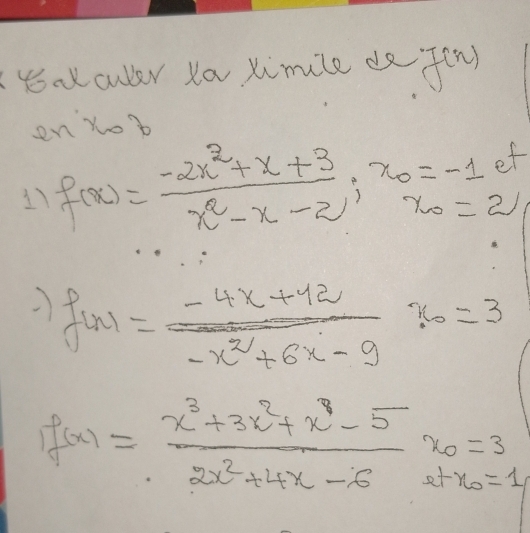 Calculer la limite de f(x)
en x₀ ?
1) f(x) = (-2x² + x + 3) / (x² - x - 2) ; x₀ = -1 et x₀ = 2
f(x) = (-4x + 12) / (-x² + 6x - 9) x₀ = 3
f(x) = (x³ + 3x² + x - 5) / (2x² + 4x - 6) x₀ = 3 et x₀ = 1